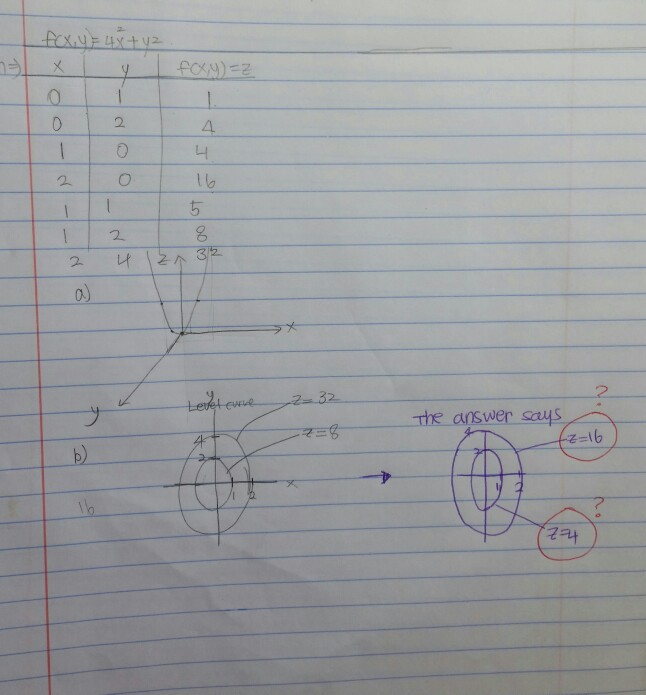 f(x,y)=4x²+y²
x y f(x,y)=z
0 1 1
0 2 4
1 0 4
2 0 16
1 1 5
1 2 8
2 4 32
a)
z
x
y
b)
Level curve
y
z=32
z=8
4
2
1 2
x
16
The answer says
?
4
2
1 2
z=16
?
z=4